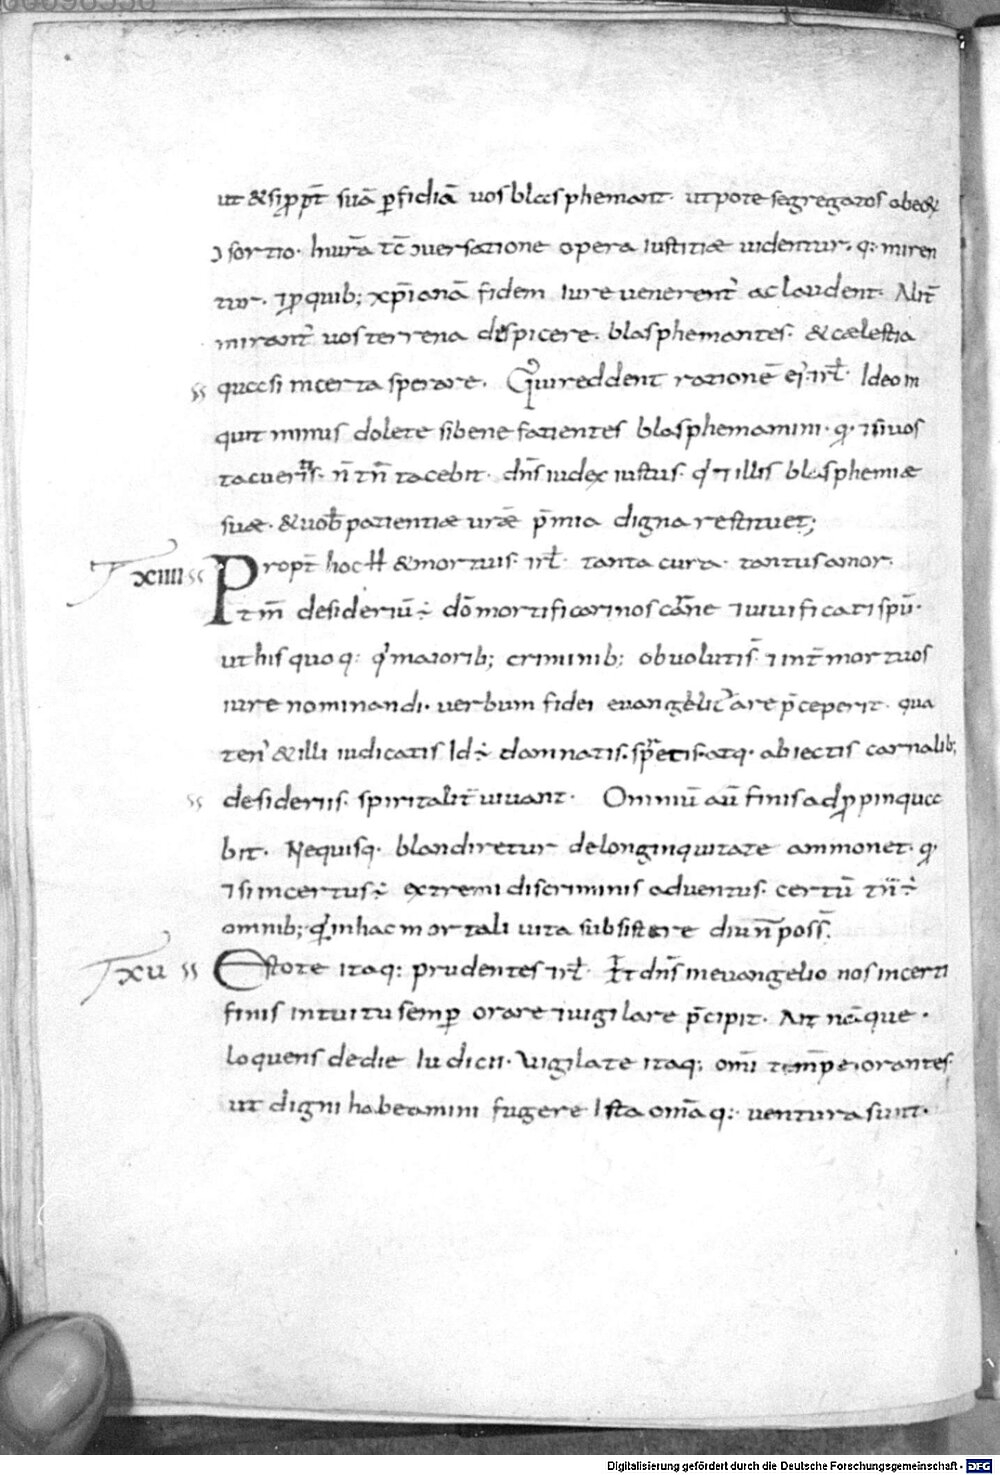 ut & si pp̄t suā ꝑfidiā uos blasphemant· ut pote segregatos ab eoꝝ
ↄsortio· In ur̄a tc̄ ↄuersatione opera iustitiae uidentur· q: miren
tur· ⁊ ꝓ quib; xp̄ianā fidem iure uenerent̄ ac laudent· Alit̄
mirant̄ uos terrena dispicere· blasphemantes· & caelestia
quasi incerta sperare· Qui reddent rationē ei· rl̄· Ideo in
quit minus dolete si bene facientes blasphemamini· q· ⁊ si uos
tacueritis· n̄ tn̄ tacebit· dn̄s iudex iustus· q' ⁊ illis blasphemiae
suae· & uob̄ patientiae ur̄ae p̄mia digna restituet;
xiiii Propt̄ hoc H & mortuis· rl̄· tanta cura· tantus amor·
tm̄ desideriū ÷ dō mortificari nos carne ⁊ uiuificari spū·
ut his quoq: q' maiorib; criminib; obuolutis· ⁊ int̄ mortuos
iure nominandi· uerbum fidei euangelicare p̄ceperit· qua
ten' & illi iudicatis Id ÷ damnatis· spretis· atq· abiectis carnalib;
desideriis· spiritalit̄ uiuant· Omniū aū finis adpropinqua
bit· Nequisq· blandiretur de longinquitate ammonet· q·
⁊ si incertus ÷ extremi discriminis aduentus· certū tn̄ ÷
omnib; q' in hac mortali uita subsistere diu n̄ poss̄·
xu Estote itaq: prudentes rl̄· Et dn̄s in euangelio nos incerti
finis intuitu semꝑ orare ⁊ uigilare p̄cipit· Ait nāque·
loquens de die Iudicii· Uigilate itaq: omī tempe· orantes·
ut digni habeamini fugere Ista omā q: uentura sunt·
Digitalisierung gefördert durch die Deutsche Forschungsgemeinschaft · DFG